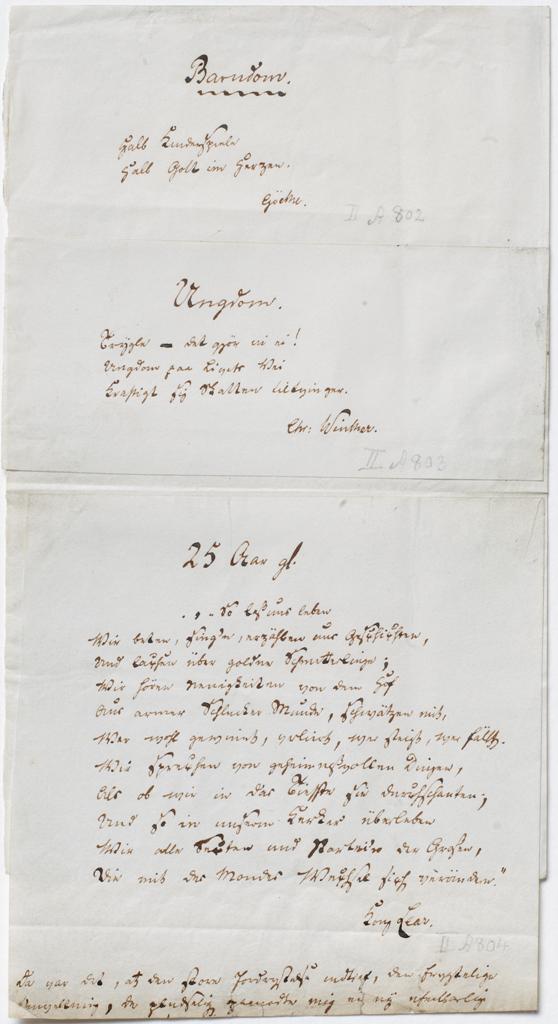 Barndom.
Halb Kinderspiele
Halb Gott im Herzen.
Göthe.
II A 802
Ungdom.
Trygle — det gjør vi ei!
Ungdom paa Livets Vei
Kraftigt sig Skatten tiltvinger.
Chr: Winther.
II A 803
25 Aar gl.
. , . So laß uns leben
Wir beten, singen, erzählen uns Geschichten,
Und lachen über goldne Schmetterlinge;
Wir hören Neuigkeiten von dem Hof
Aus armer Schlucker Munde, schwätzen mit,
Wer wohl gewinnt, verliert, wer steigt, wer fällt.
Wir sprechen von geheimnißvollen Dingen,
Als ob wir in das Tiefste sie durchschauten;
Und so in unserm Kerker überleben
Wir alle Secten und Parteien der Großen,
Die mit des Mondes Wechsel sich verändern."
Kong Lear.
II A 804
Da var det, at den store Jordrystelse indtraf, den frygtelige
Omvæltning, der pludselig paanødte mig en ny ufeilbarlig